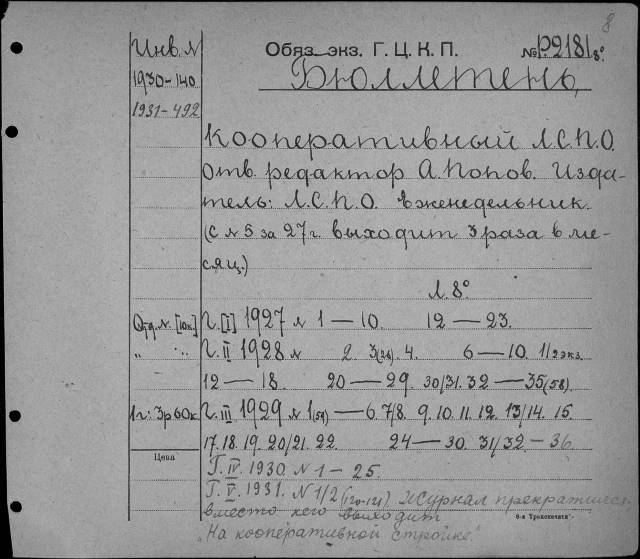 8
Инв. №
Обяз. экз. Г. Ц. К. П. № P2181 8°
1930-140
Бюллетень,
1931-492
Кооперативный Л.С.П.О.
Отв. редактор А. Попов. Изда-
тель: Л.С.П.О. Еженедельник.
(с № 5 за 27 г. выходит 3 раза в ме-
сяц.)
Л. 8°
Отд. №. [10к.] Г. [I] 1927 № 1 — 10. 12 — 23.
„ „ Г. II 1928 № 2. 3(26) 4. 6 — 10. 11 2 экз.
12 — 18. 20 — 29. 30/31. 32 — 35(58).
1 г: 3р 60к Г. III 1929 № 1(59) — 6. 7/8. 9. 10. 11. 12. 13/14. 15.
17. 18. 19. 20/21. 22. 24 — 30. 31/32 — 36
Цена
Г. IV. 1930. № 1 — 25.
Г. V. 1931. № 1/2 (120-121) Журнал прекратился
вместо него выходит
„На кооперативной стройке."
8-я Транспечати